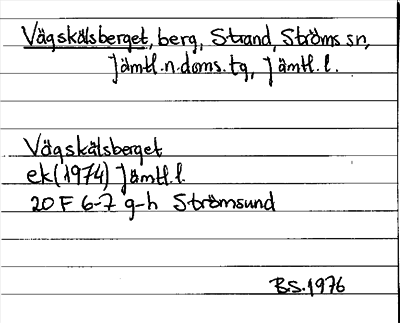 Vägskälsberget, berg, Strand, Ströms sn,
Jämtl.n.doms.tg, Jämtl.l.
Vägskälsberget
ek(1974) Jämtl.l.
20 F 6-7 g-h Strömsund
BS.1976